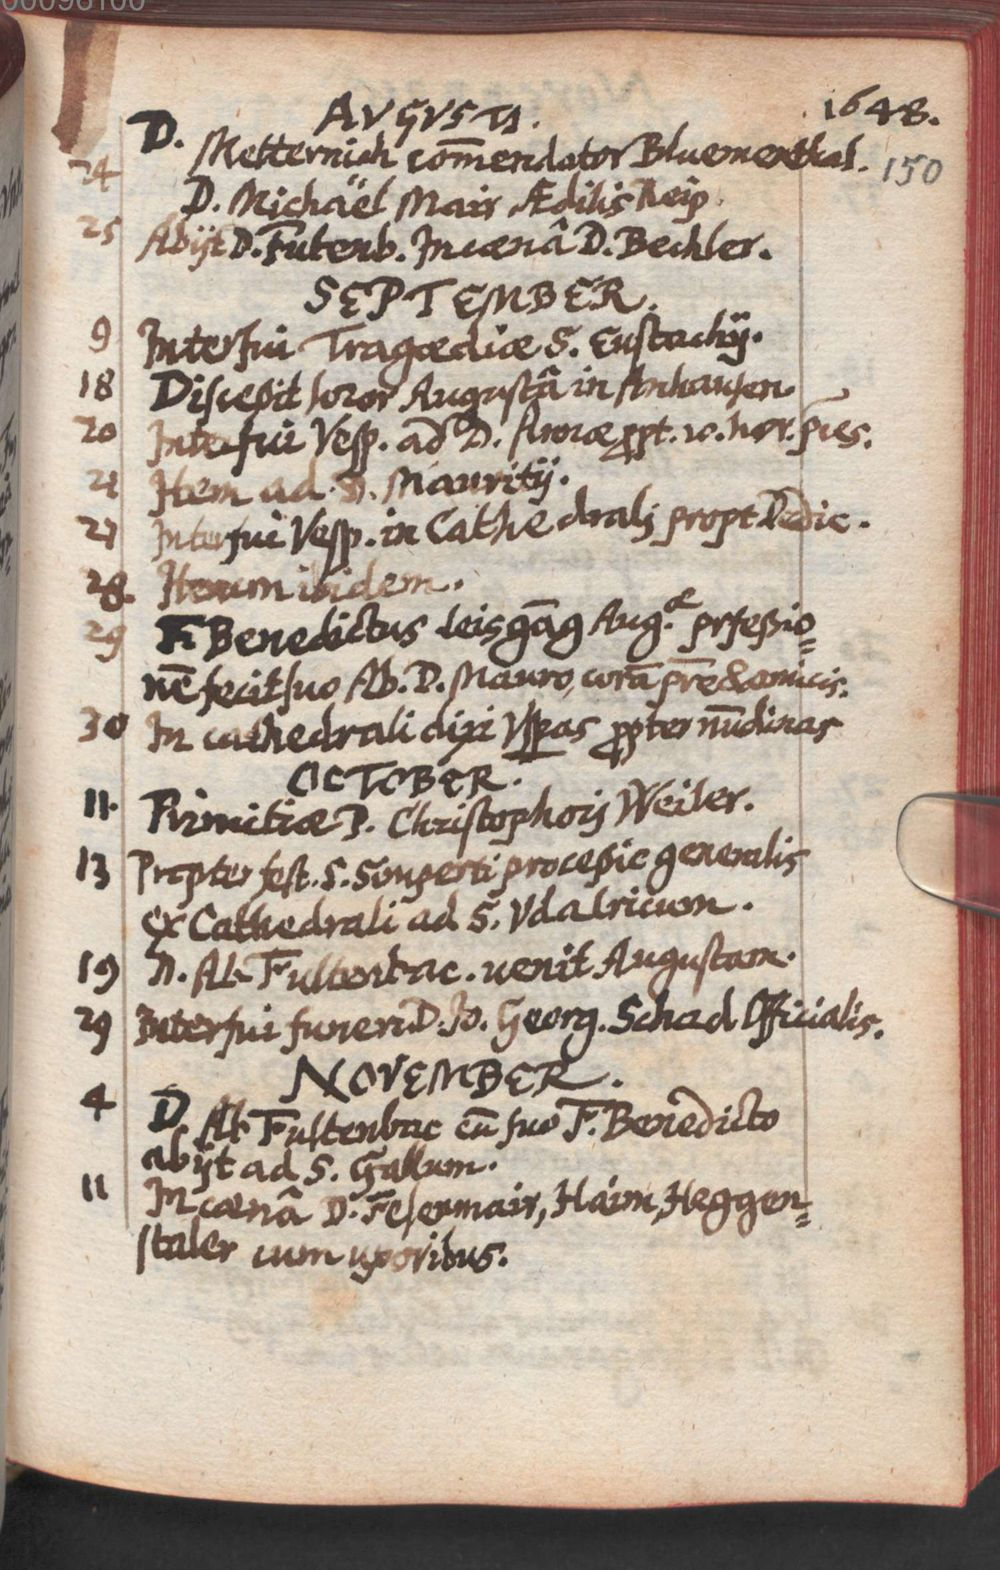 00098100
AVGVSTI. 1648.
D. Metternich com̄endator Bluementhal. 150
24 D. Michaël Mair Ædilis Reip.
25 Abijt D. Futenb. In cænâ D. Bechler.
SEPTEMBER.
9 Interfui Tragœdiæ S. Eustachij.
18 Discessit soror Augustâ in Anhausen.
20 Interfui Vesp. ad D. Annæ ppt. 10. hor. p̄ces.
21 Item ad S. Mauritij.
27 Interfui Vesp. in Cathedrali propt Dedic.
28. Iterum ibidem.
29 F. Benedictus Leisgāg Aug.æ prfessio=
nē fecit suo Ab. D. Mauro, corā p̄re & amicis.
30 In cathedrali dixi Vspas ppter nūdinas
OCTOBER.
11. Primitiæ P. Christophori Weiler.
13 Propter fest. S. Simperti processio generalis
ex Cathedrali ad S. Vdalricum.
19 D. Ab Fultenbac. uenit Augustam.
29 Interfui funeri D. Jo. Georg. Schad Officialis.
NOVEMBER.
4 D. Ab Fultenbac cū suo F. Benedicto
abijt ad S. Gallum.
11 In cænâ D. Fesenmair, Haim, Heggen=
staler cum uxoribus.